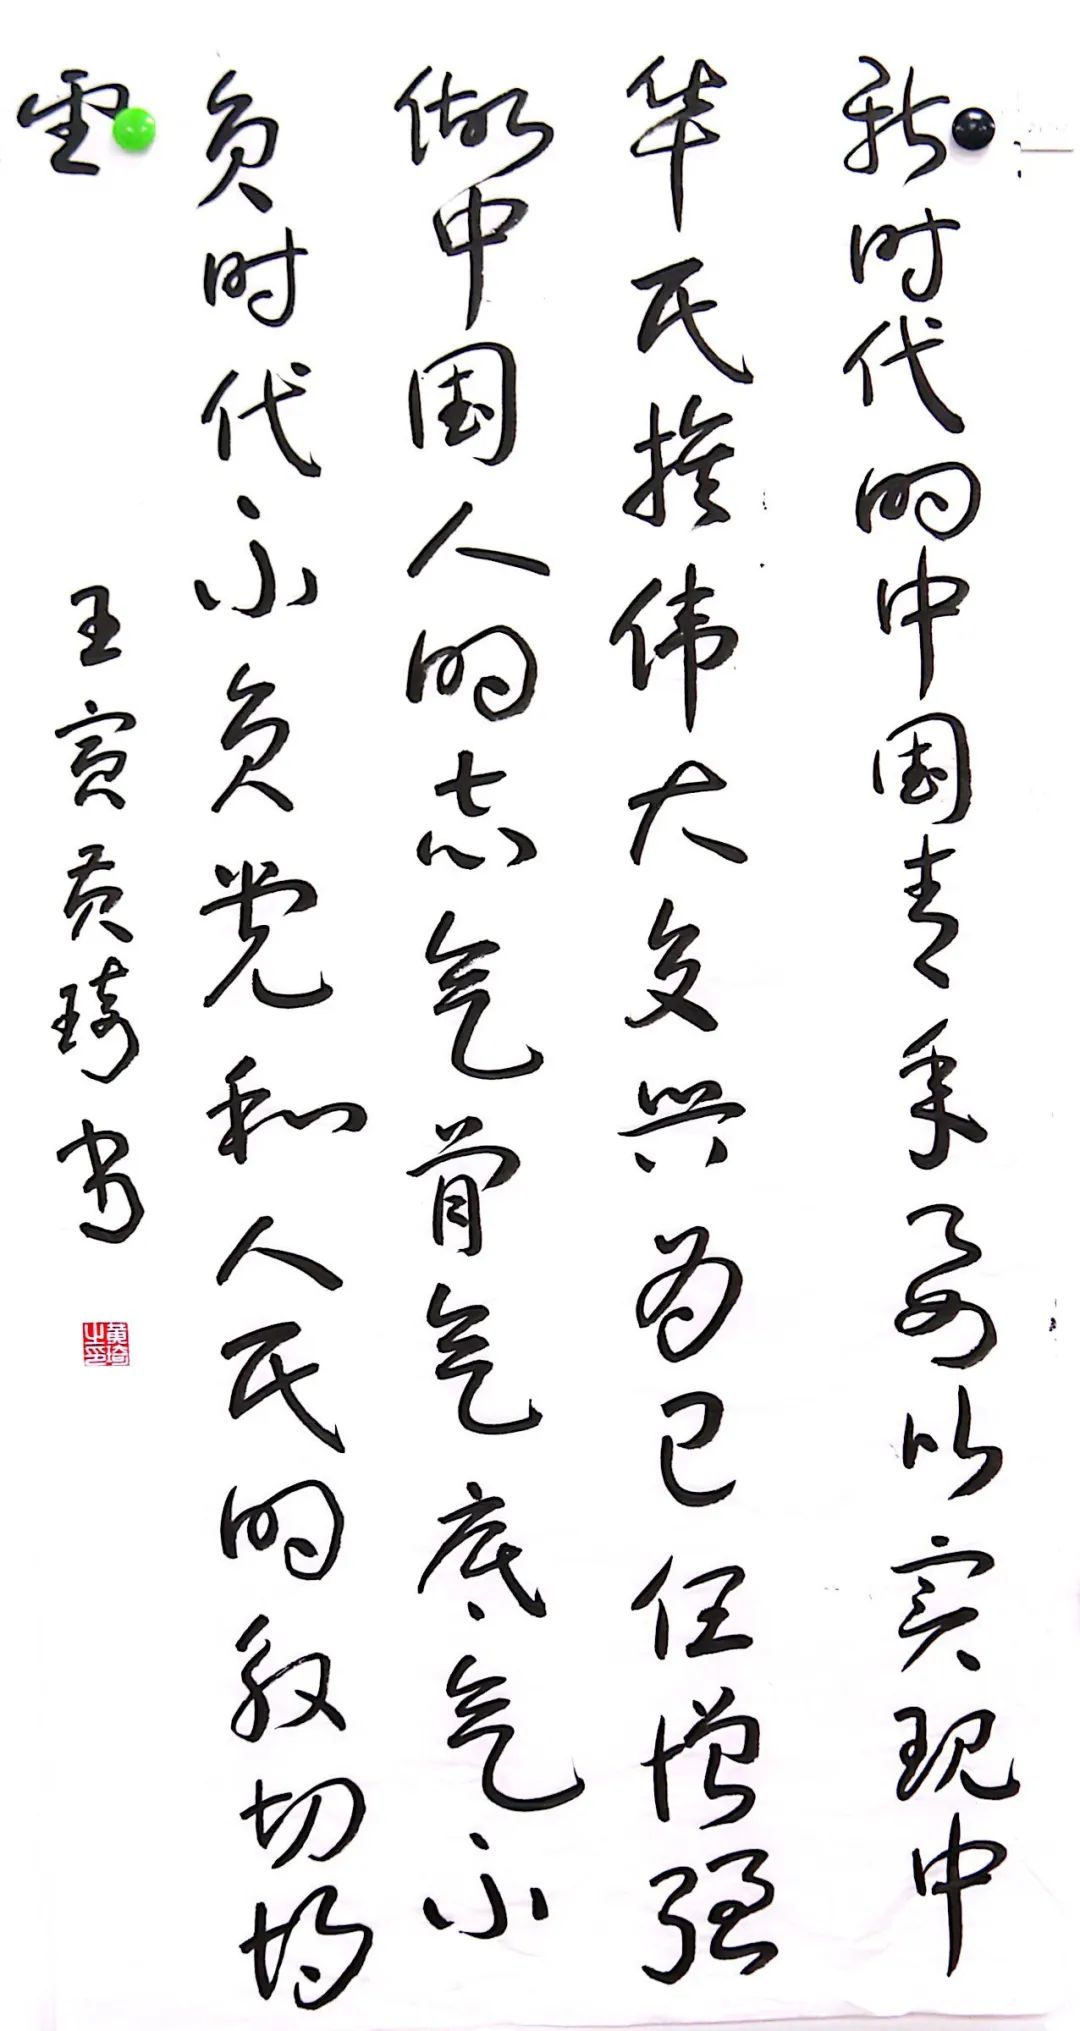 新时代的中国青年要以实现中
华民族伟大复兴为己任增强
做中国人的志气骨气底气不
负时代不负党和人民的殷切期
望
壬寅黄琦书
黄琦之印